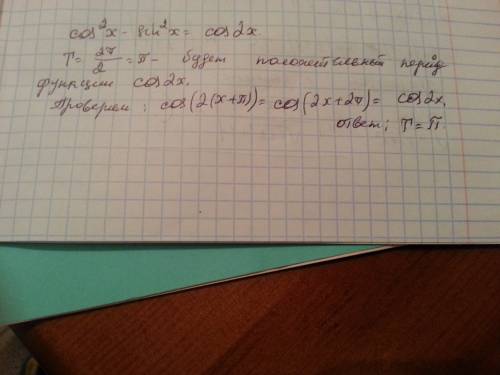 cos²x - sin²x = cos2x.
T = 2π/2 = π - будет положительный период
функции cos2x.
Проверем: cos(2(x+π)) = cos(2x+2π) = cos2x,
ответ; T = π